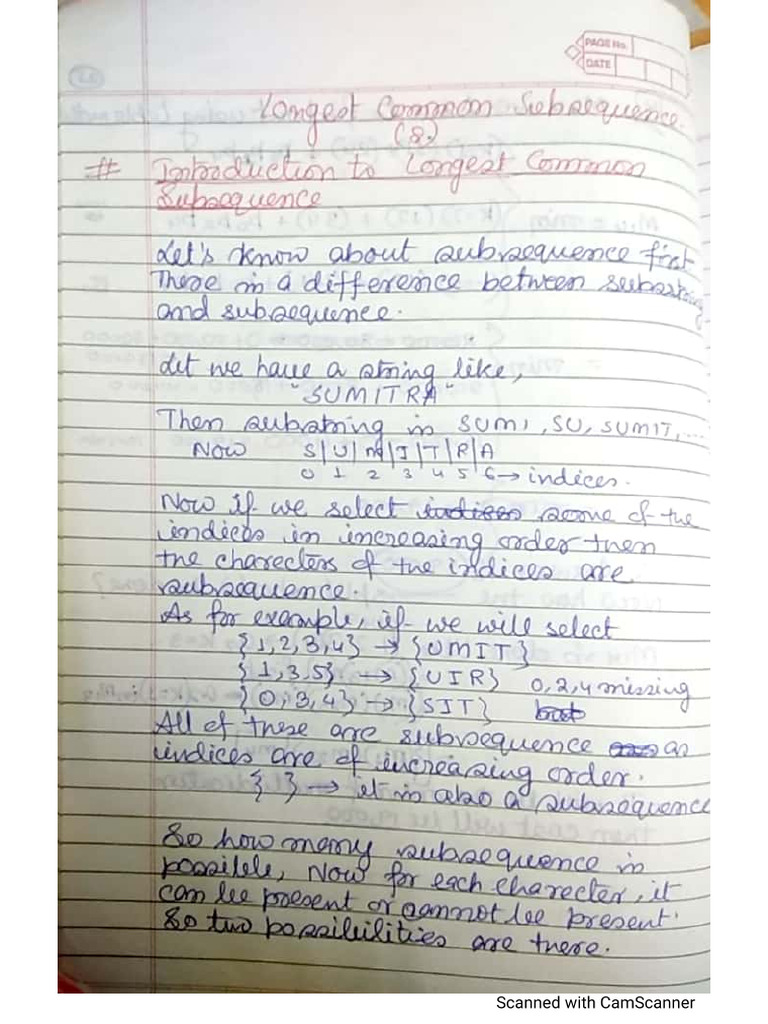 PAGE No.
DATE
Longest Common Subsequence.
(8.)
# Introduction to Longest Common
Subsequence
Let's know about subsequence first
There is a difference between substring
and subsequence.
Let we have a string like,
"SUMITRA"
Then substring is SUMI, SU, SUMIT, ...
Now S|U|M|I|T|R|A
0 1 2 3 4 5 6 → indices.
Now if we select indices some of the
indices in increasing order then
the charecters of the indices are
subsequence.
As for example, if we will select
{1,2,3,4} → {UMIT}
{1,3,5} → {UIR} 0,2,4 missing
{0,3,4} → {SIT} but
All of these are subsequence as
indices are of increasing order.
{ } → it is also a subsequence
So how many subsequence is
possible, Now for each charecter, it
can be present or cannot be present.
So two possibilities are there.
Scanned with CamScanner